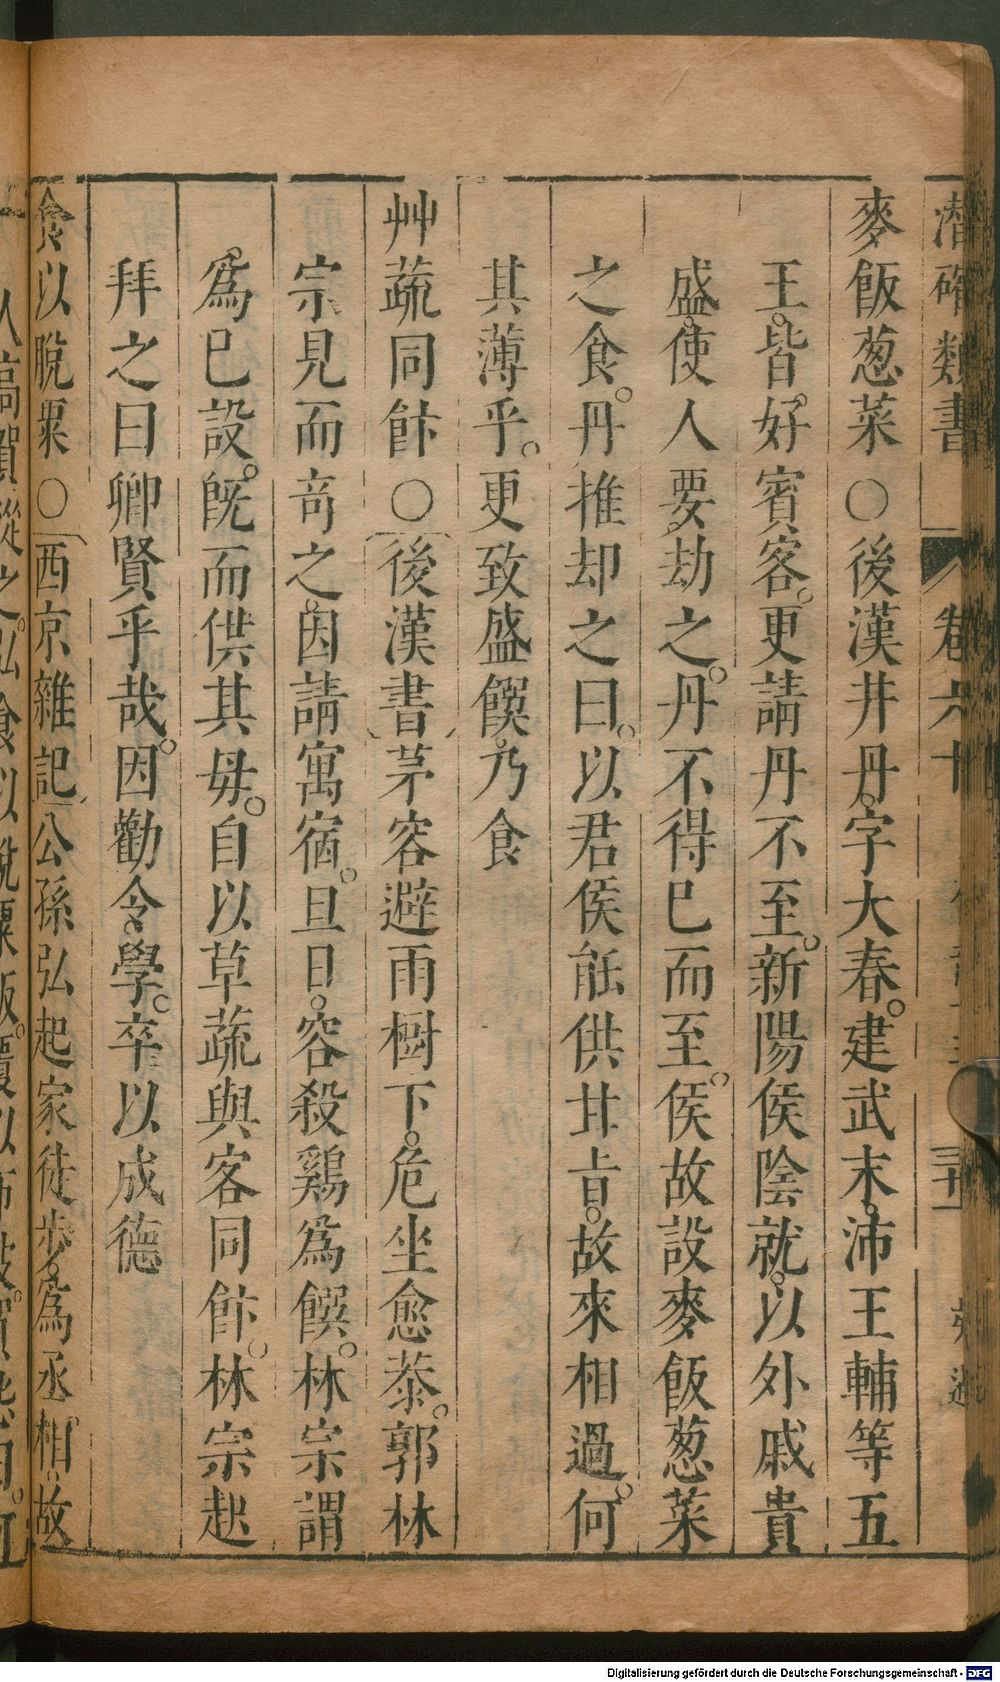 潛確類書 卷六十 三十一
麥飯葱菜 ○ 後漢井丹字大春。建武末。沛王輔等五
王。皆好賓客。更請丹不至。新陽侯陰就。以外戚貴
盛。使人要劫之。丹不得已而至。侯故設麥飯葱菜
之食。丹推却之曰。以君侯能供甘旨。故來相過。何
其薄乎。更致盛饌。乃食
艸蔬同飰 ○ 後漢書 茅容避雨樹下。危坐愈恭。郭林
宗見而竒之。因請寓宿。旦日。容殺鷄為饌。林宗謂
爲已設。旣而供其母。自以草蔬與客同飰。林宗起
拜之曰卿賢乎哉。因勸令學。卒以成德
食以脫粟 ○ 西京雜記 公孫弘起家徒步。爲丞相。故
人高賀從之。弘食以脫粟飯。覆以布被。賀
Digitalisierung gefördert durch die Deutsche Forschungsgemeinschaft - DFG